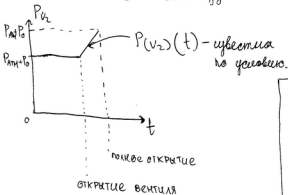 P_{V₂}
P_{АД}+P₀
P_{АТМ}+P₀
P(V₂)(t) – известна
по условию.
0
t
полное открытие
открытие вентиля